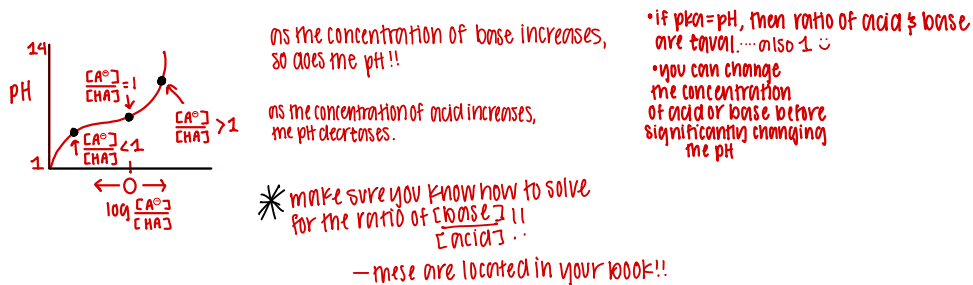 14
pH
1
[A⊖]
[HA] =1
[A⊖]
[HA] <1
[A⊖]
[HA] >1
0
log [A⊖]
[HA]
as the concentration of base increases,
so does the pH!!
as the concentration of acid increases,
the pH decreases.
* make sure you know how to solve
for the ratio of [base] !!
[acid]
— these are located in your book!!
•if pka=pH, then ratio of acid & base
are equal.... also 1 ☺
•you can change
the concentration
of acid or base before
significantly changing
the pH